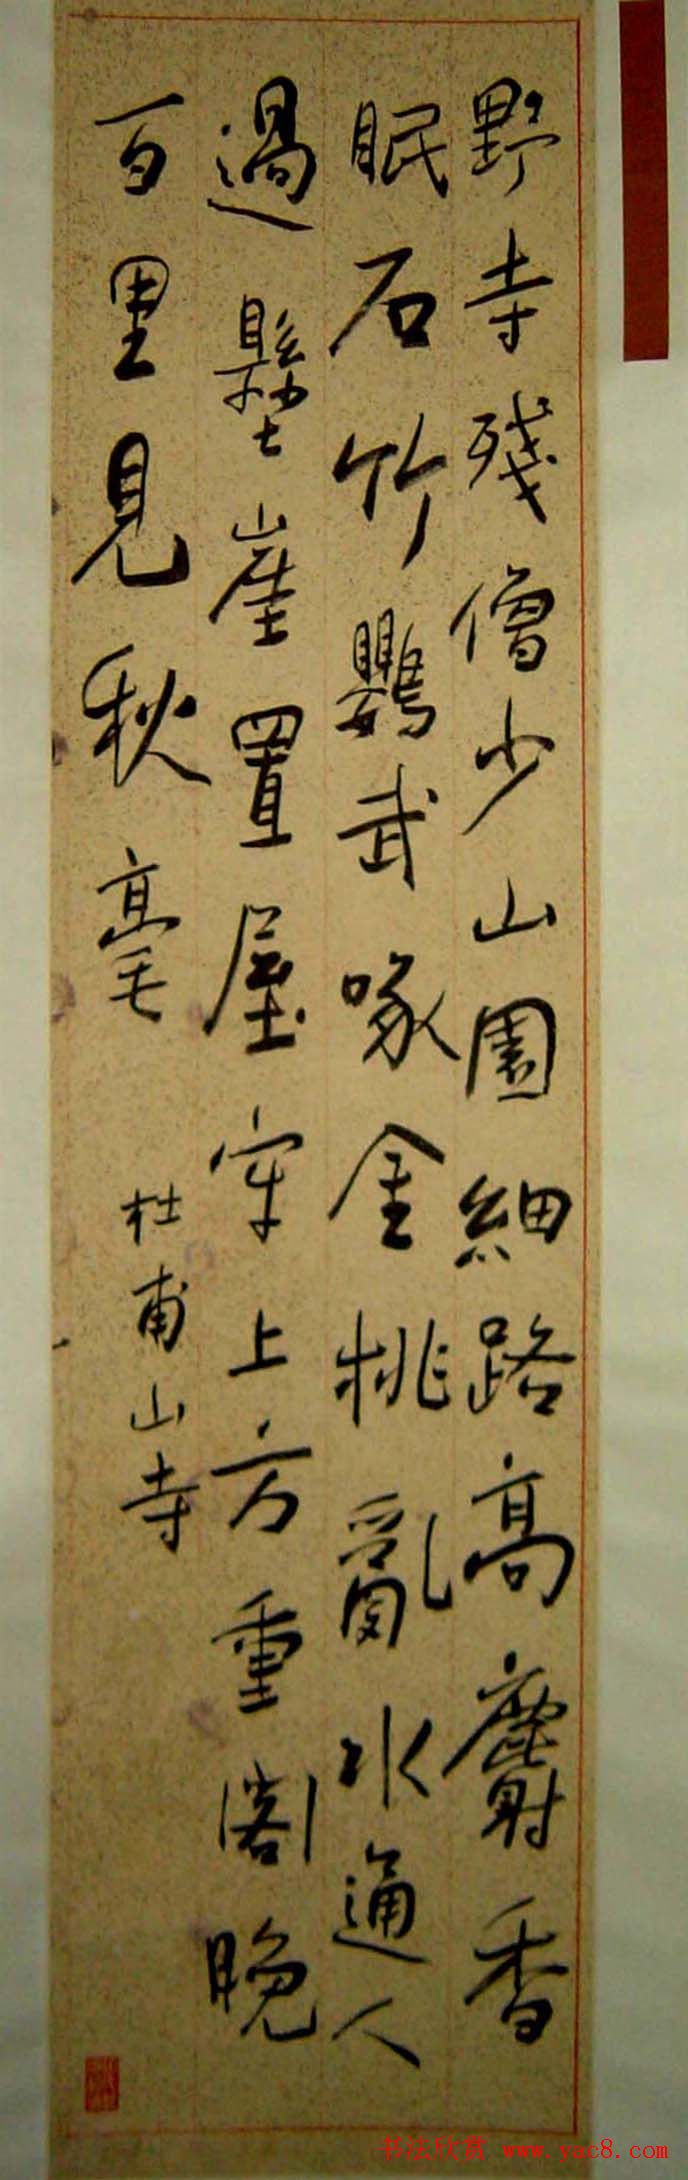 野寺殘僧少山園細路高麝香
眠石竹鸚武啄金桃亂水通人
過懸崖置屋牢上方重閣晚
百里見秋毫
杜甫山寺
书法欣赏 www.yac8.com